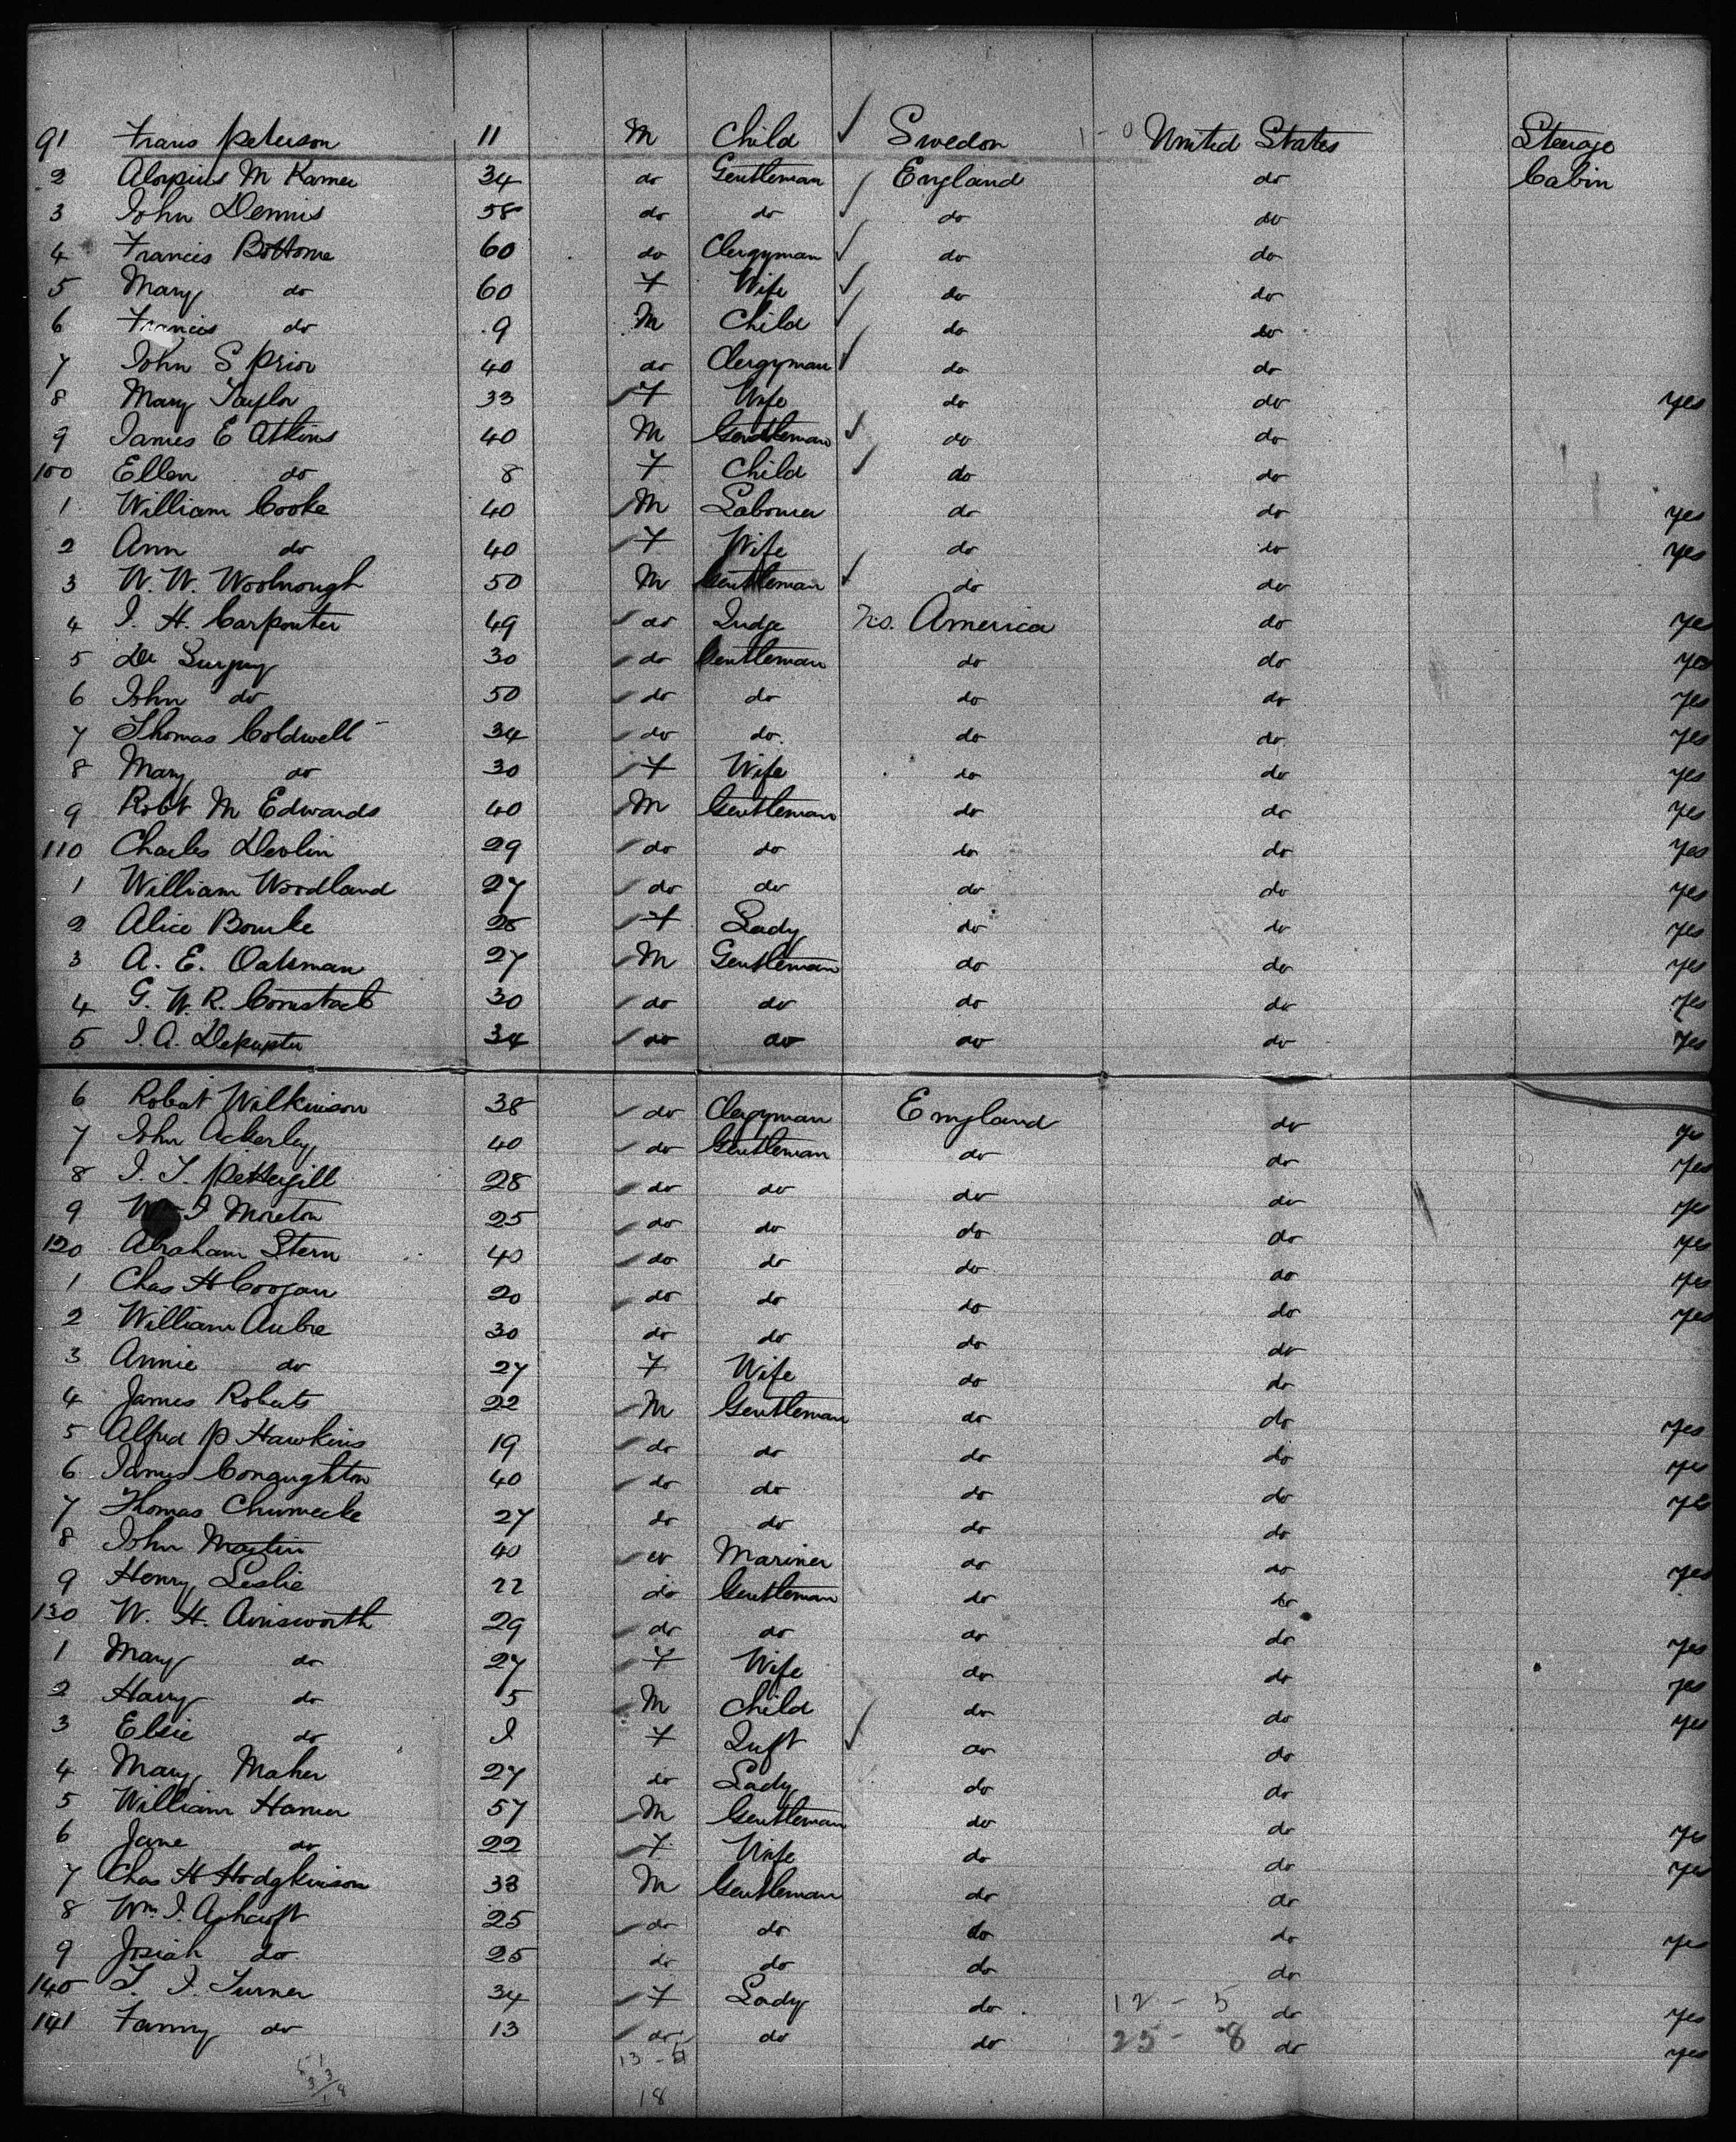 91 Frans Peterson 11 M Child ✓ Sweden 1-0 United States Steerage
2 Aloysius M Kamer 34 do Gentleman ✓ England do Cabin
3 John Dennis 58 do do ✓ do do
4 Francis Bottome 60 do Clergyman ✓ do do
5 Mary do 60 F Wife ✓ do do
6 Francis do 9 M Child ✓ do do
7 John S Prior 40 do Clergyman ✓ do do
8 Mary Taylor 33 F Wife do do yes
9 James E Atkins 40 M Gentleman ✓ do do
100 Ellen do 8 F Child ✓ do do
1 William Cooke 40 M Labourer do do yes
2 Ann do 40 F Wife do do yes
3 W. W. Woolnough 50 M Gentleman ✓ do do
4 J. H. Carpenter 49 do Judge No. America do yes
5 De 30 do Gentleman do do yes
6 John do 50 do do do do yes
7 Thomas Coldwell 34 do do do do yes
8 Mary do 30 F Wife do do yes
9 Robt M Edwards 40 M Gentleman do do yes
110 Charles Devlin 29 do do do do yes
1 William Woodland 27 do do do do yes
2 Alice Bourke 28 F Lady do do yes
3 A. E. Oatsman 27 M Gentleman do do yes
4 G. W. R. Comstock 30 do do do do yes
5 J. A. 34 do do do do yes
6 Robert Wilkinson 38 do Clergyman England do yes
7 John Ackerley 40 do Gentleman do do yes
8 J. T. Pettergill 28 do do do do yes
9 Wm J Moreton 25 do do do do yes
120 Abraham Stern 40 do do do do yes
1 Chas H Coogan 20 do do do do yes
2 William Aubre 30 do do do do
3 Annie do 27 F Wife do do
4 James Roberts 22 M Gentleman do do yes
5 Alfred P Hawkins 19 do do do do yes
6 James Conaughton 40 do do do do yes
7 Thomas 27 do do do do
8 John Martin 40 do Mariner do do yes
9 Henry Leslie 22 do Gentleman do do
130 W. H. Ainsworth 29 do do do do yes
1 Mary do 27 F Wife do do yes
2 Harry do 5 M Child do do yes
3 Elsie do I F Inft ✓ do do
4 Mary Maher 27 do Lady do do
5 William Hamer 57 M Gentleman do do yes
6 Jane do 22 F Wife do do yes
7 Chas H Hodgkinson 33 M Gentleman do do
8 Wm J. Ashcroft 25 do do do do yes
9 Josiah do 25 do do do do
140 T. J. Turner 34 F Lady do 12 - 5 do yes
141 Fanny do 13 do do do 25 - 8 do yes
13 - 5
18